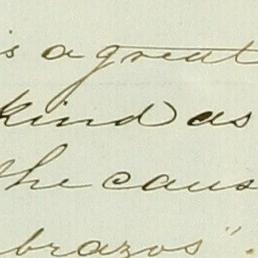 is a great
kind as
the caus
brazos".